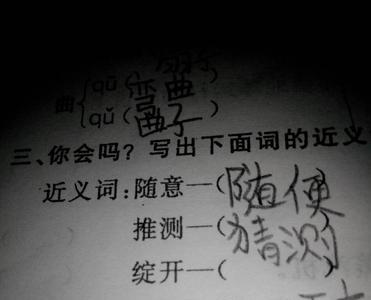 曲 qū(弯曲)
qǔ(曲子)
三、你会吗？写出下面词的近义
近义词:随意—(随便
推测—(猜测)
绽开—(